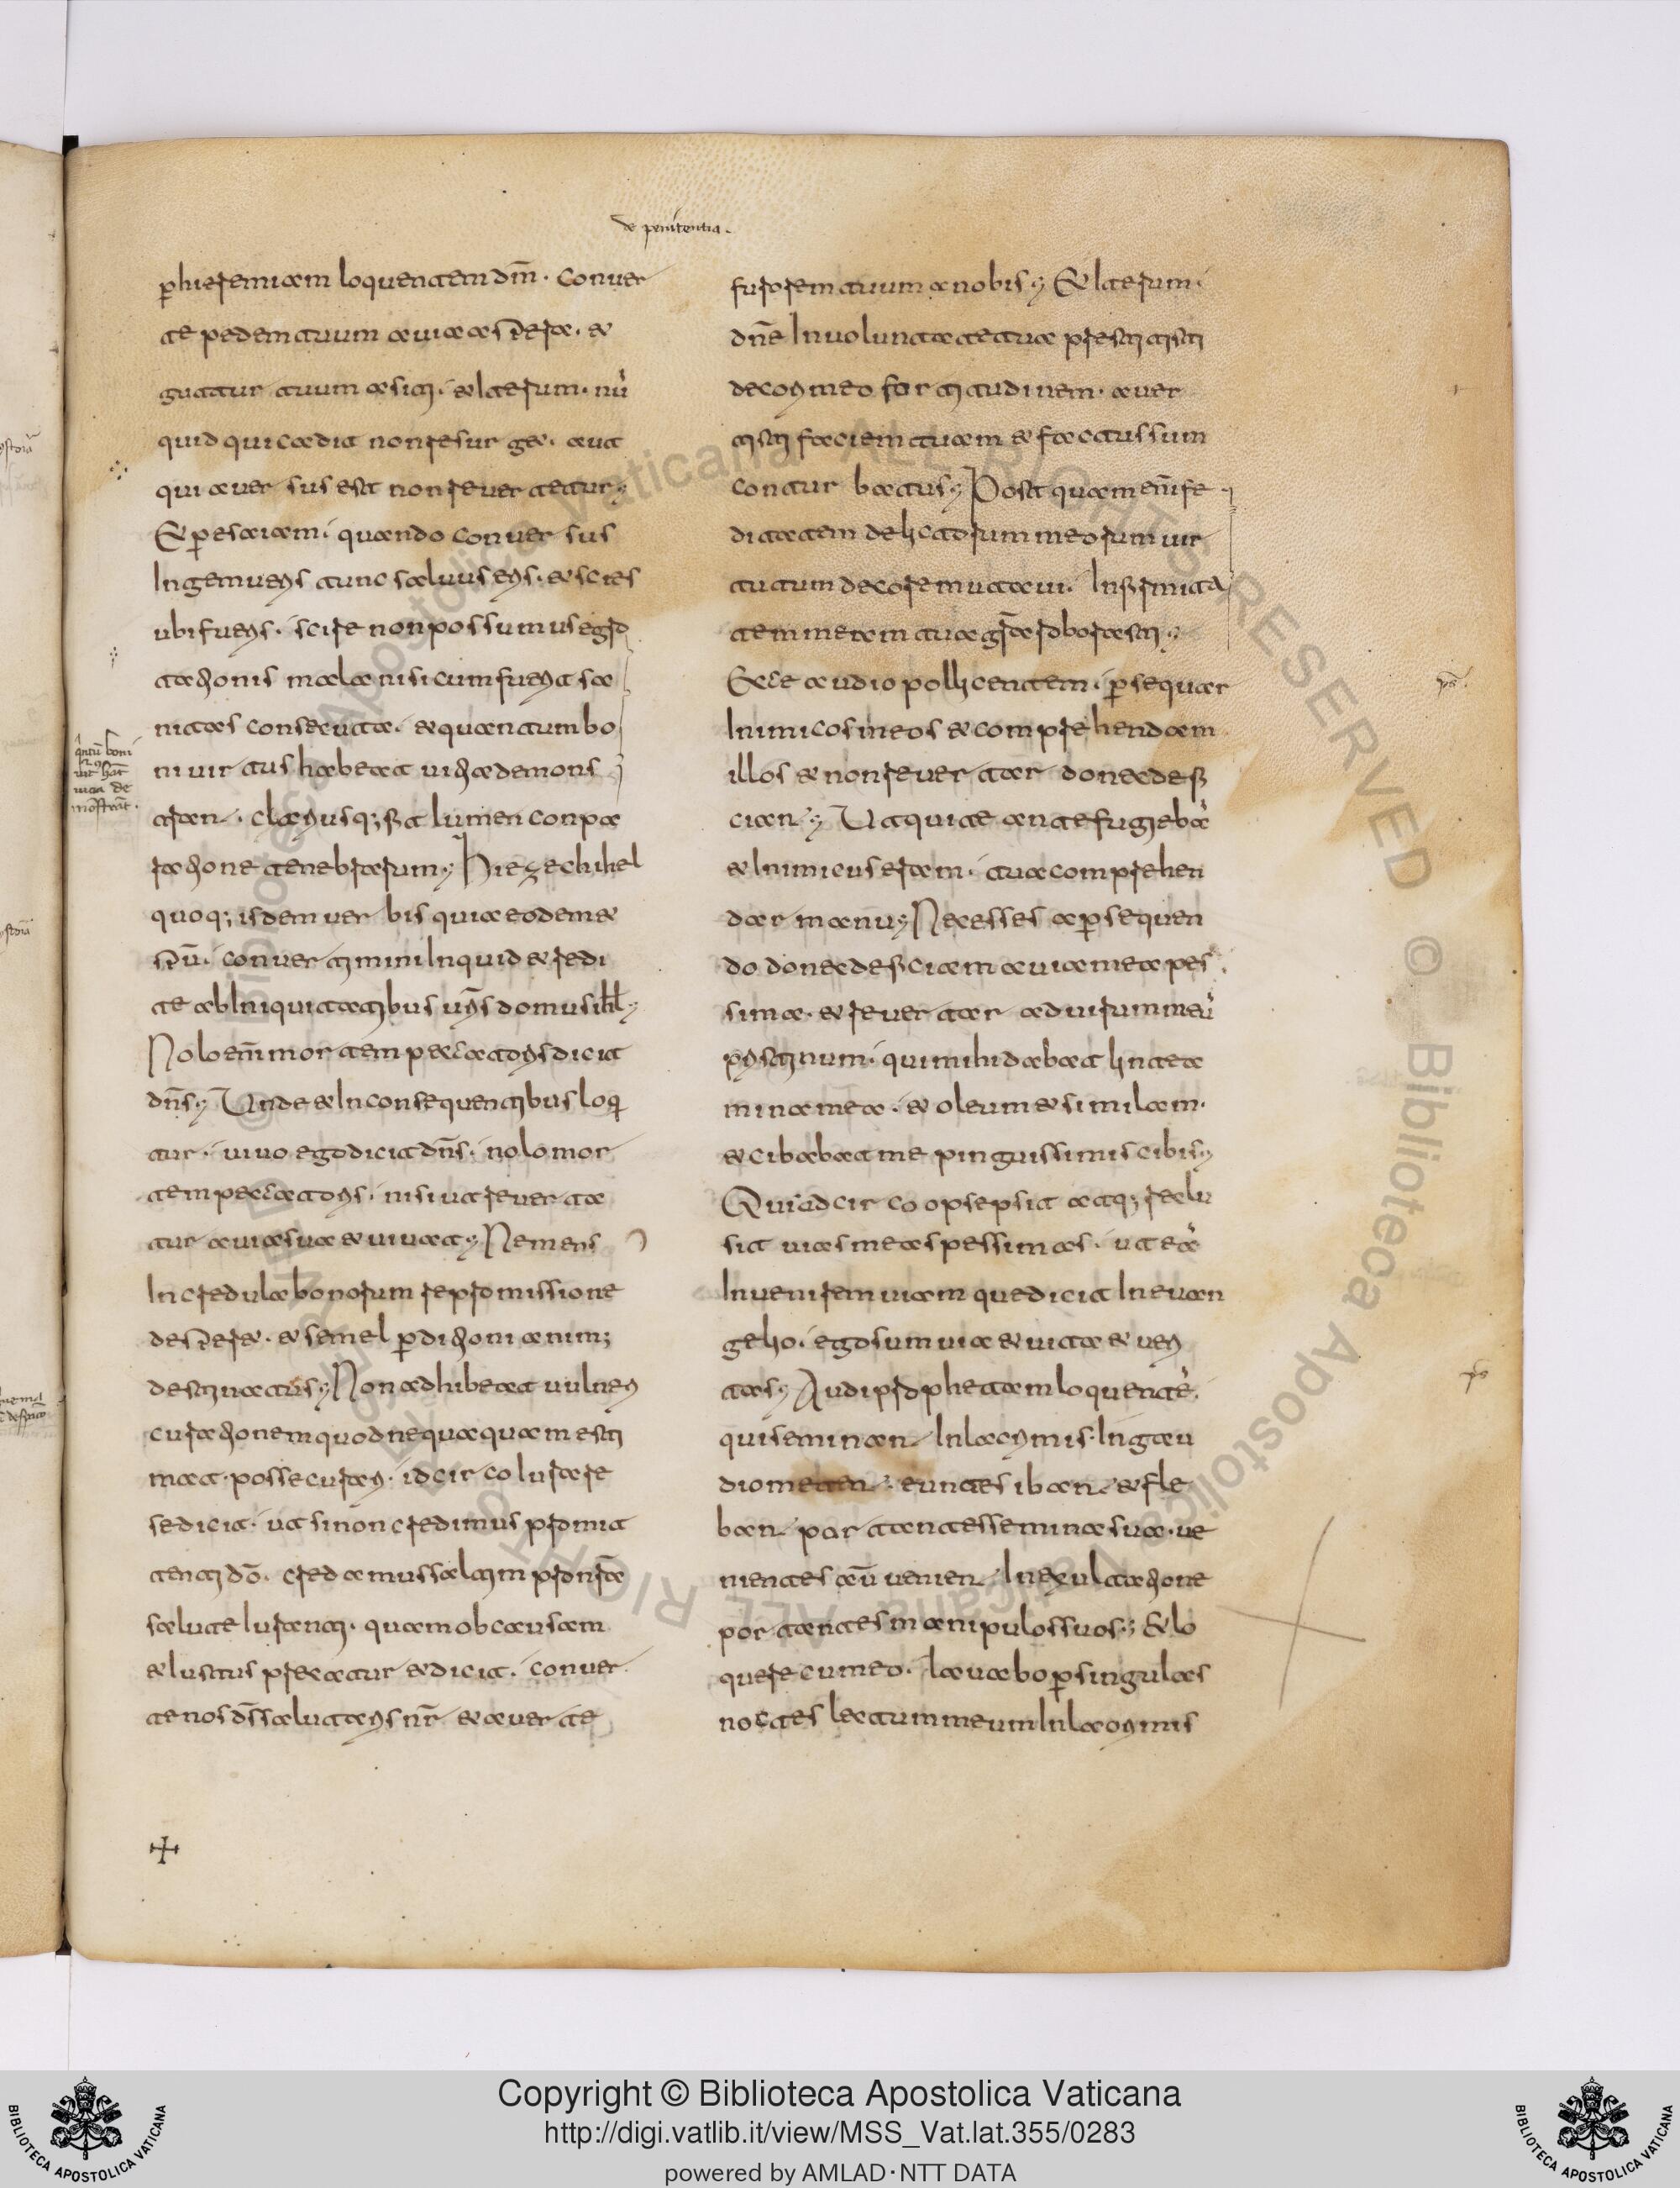 de penitentia.
p̄ hieremiam loquentem dm̄. conuer
te pedem tuum a uia aspera. et
guttur tuum a siti. et Iterum. nū
quid qui cadit non resurget. aut
qui auersus est non reuertetur;
Et p̄ esaiam. quando conuersus
Ingemueris tunc saluus eris. et scies
ubi fueris. scire non possumus egro
tationis mala nisi cum fuerit sa
nitas consecuta. et quantum bo
ni uirtus habeat uitia demons
trant. clariusq; fit lumen conpa
ratione tenebrarum; Hiezechihel
quoq; isdem uerbis quia eodem et
spū. conuertimini Inquid et redi
te ab Iniquitatibus uris domus ihl;
Nolo enim mortem peccatoris dicit
dn̄s; Unde et In consequentibus loqi
tur. uiuo ego dicit dn̄s. nolo mor
tem peccatoris. nisi ut reuerta
tur a uia sua et uiuat; Ne mens
Incredula bonorum repromissione
desperet. et semel p̄ditioni anim;
destinatus; Non adhibeat uulneri
curationem quod nequaquam esti
mat posse curari. idcirco Iurare
se dicit. ut si non credimus promit
tenti dō. credamus saltim pro nr̄a
salute Iuranti. quam ob causam
et Iustus precatur et dicit. conuer
te nos ds̄ salutaris nr̄ et auerte
furorem tuum a nobis; Et Iterum.
dn̄e In uoluntate tua prestitisti
decori meo fortitudinem. auer
tisti faciem tuam et factus sum
conturbatus; Postquam enim fe
ditatem delictorum meorum uir
tutum decore mutaui. Infirmita
tem meam tua gr̄a roborasti;
Ecce audio pollicentem. p̄sequar
Inimicos meos et comprehendam
illos et non reuertar donec defi
ciant; Ut qui te ante fugiebā
et Inimicus eram. tua comprehen
dar manu; Ne cesses a p̄sequen
do donec deficiam a uia mea pes
sima. et reuertar ad uirum meū
pristinum. qui mihi dabat lintea
mina mea. et oleum et similam.
et cibabat me pinguissimis cibis;
Qui idcirco opsepsit atq; reclu
sit uias meas pessimas. ut eā
Inuenirem uiam que dicit In euan
gelio. ego sum uia et uita et ueri
tas; Audi prophetam loquentē.
qui seminant In lacrimis. In gau
dio metent. euntes ibant et fle
bant portantes semina sua. ue
nientes aū uenient In exultatione
portantes manipulos suos; Et lo
quere cum eo. lauabo p̄ singulas
noctes lectum meum In lacrimis